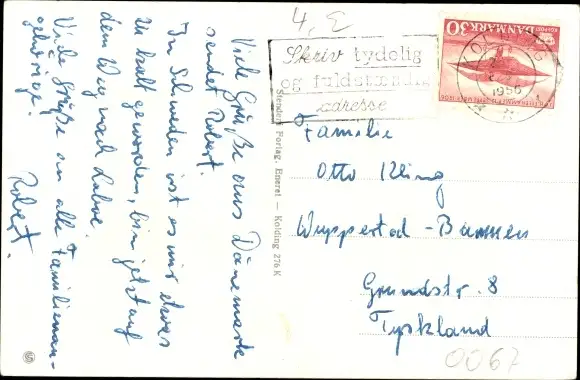 4, E
Viele Grüße aus Dänemark
sendet Robert.
In Schweden ist es mir etwas
zu kalt geworden, bin jetzt auf
dem Weg nach
Viele Grüße an alle Familienan-
gehörige.
Robert.
Stenders Forlag, Eneret — Kolding 276 K
Skriv tydelig
og fuldstændig
adresse
KOLDING
1956
DANMARK 30
Familie
Otto Kling
Wuppertal-Barmen
Grundstr. 8
Tyskland
0067